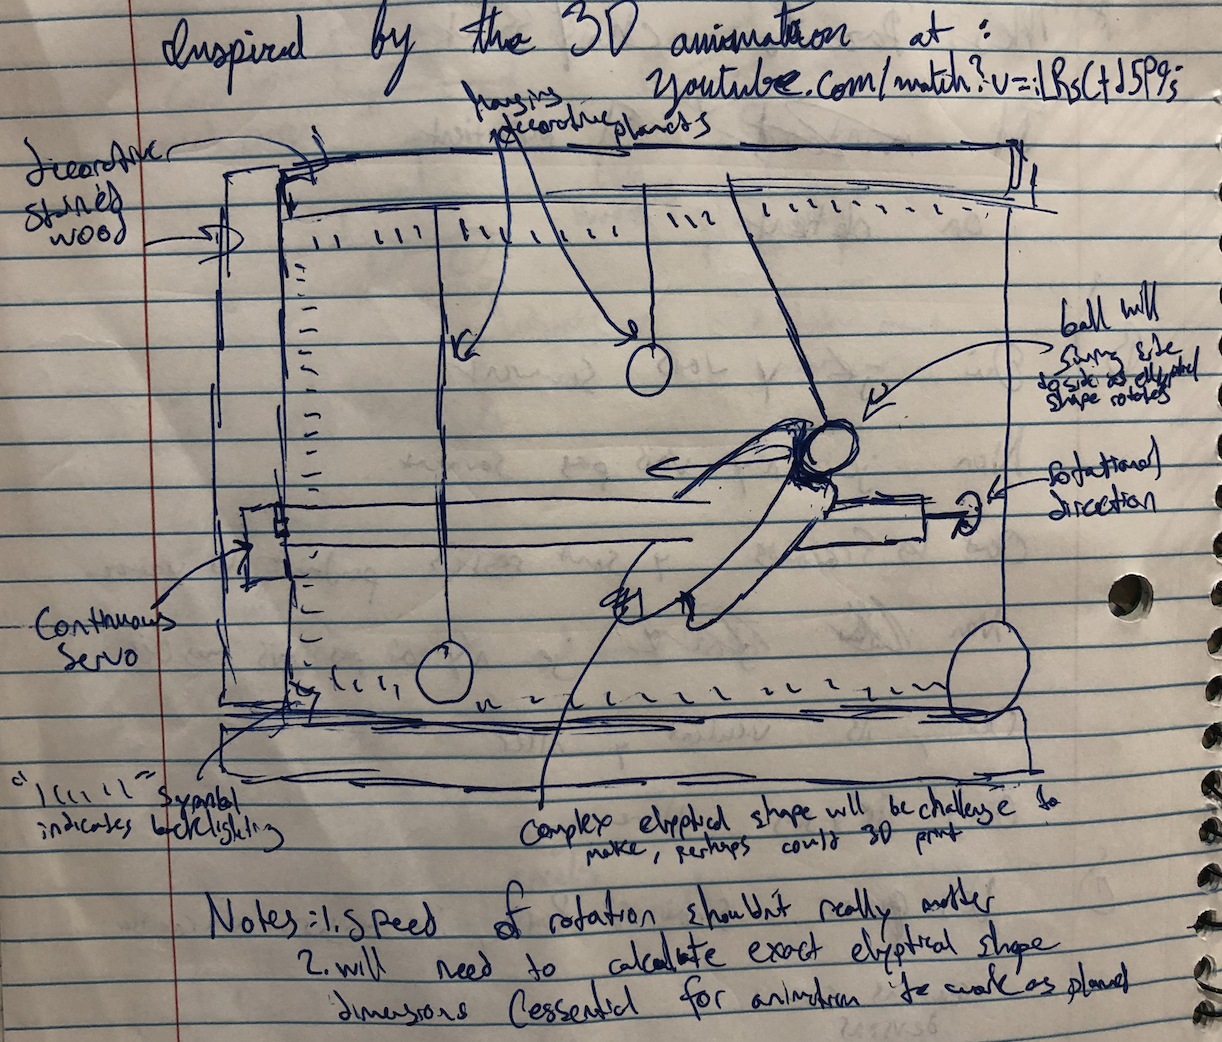 Inspired by the 3D animation at :
youtube.com/watch?v=
Hanging
decorative planets
decorative
stained
wood
ball will
swing side
to side as elyptical
shape rotates
rotational
direction
Continuous
Servo
"" symbol
indicates backlighting
Complex elyptical shape will be challenge to
make, perhaps could 3D print
Notes: 1. Speed of rotation shouldn't really matter
2. will need to calculate exact elyptical shape
dimensions (essential for animation to work as planned